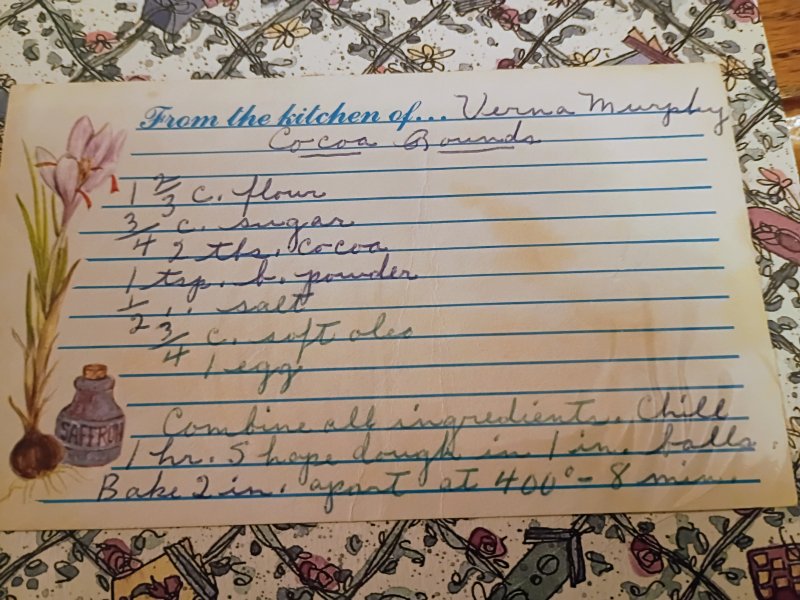 From the kitchen of... Verna Murphy
Cocoa Rounds
1 2/3 c. flour
3/4 c. sugar
2 tbs. cocoa
1 tsp. b. powder
1/2 " salt
3/4 c. soft oleo
1 egg
Combine all ingredients. Chill
1 hr. Shape dough in 1 in. balls
Bake 2 in. apart at 400° - 8 min.
SAFFRON